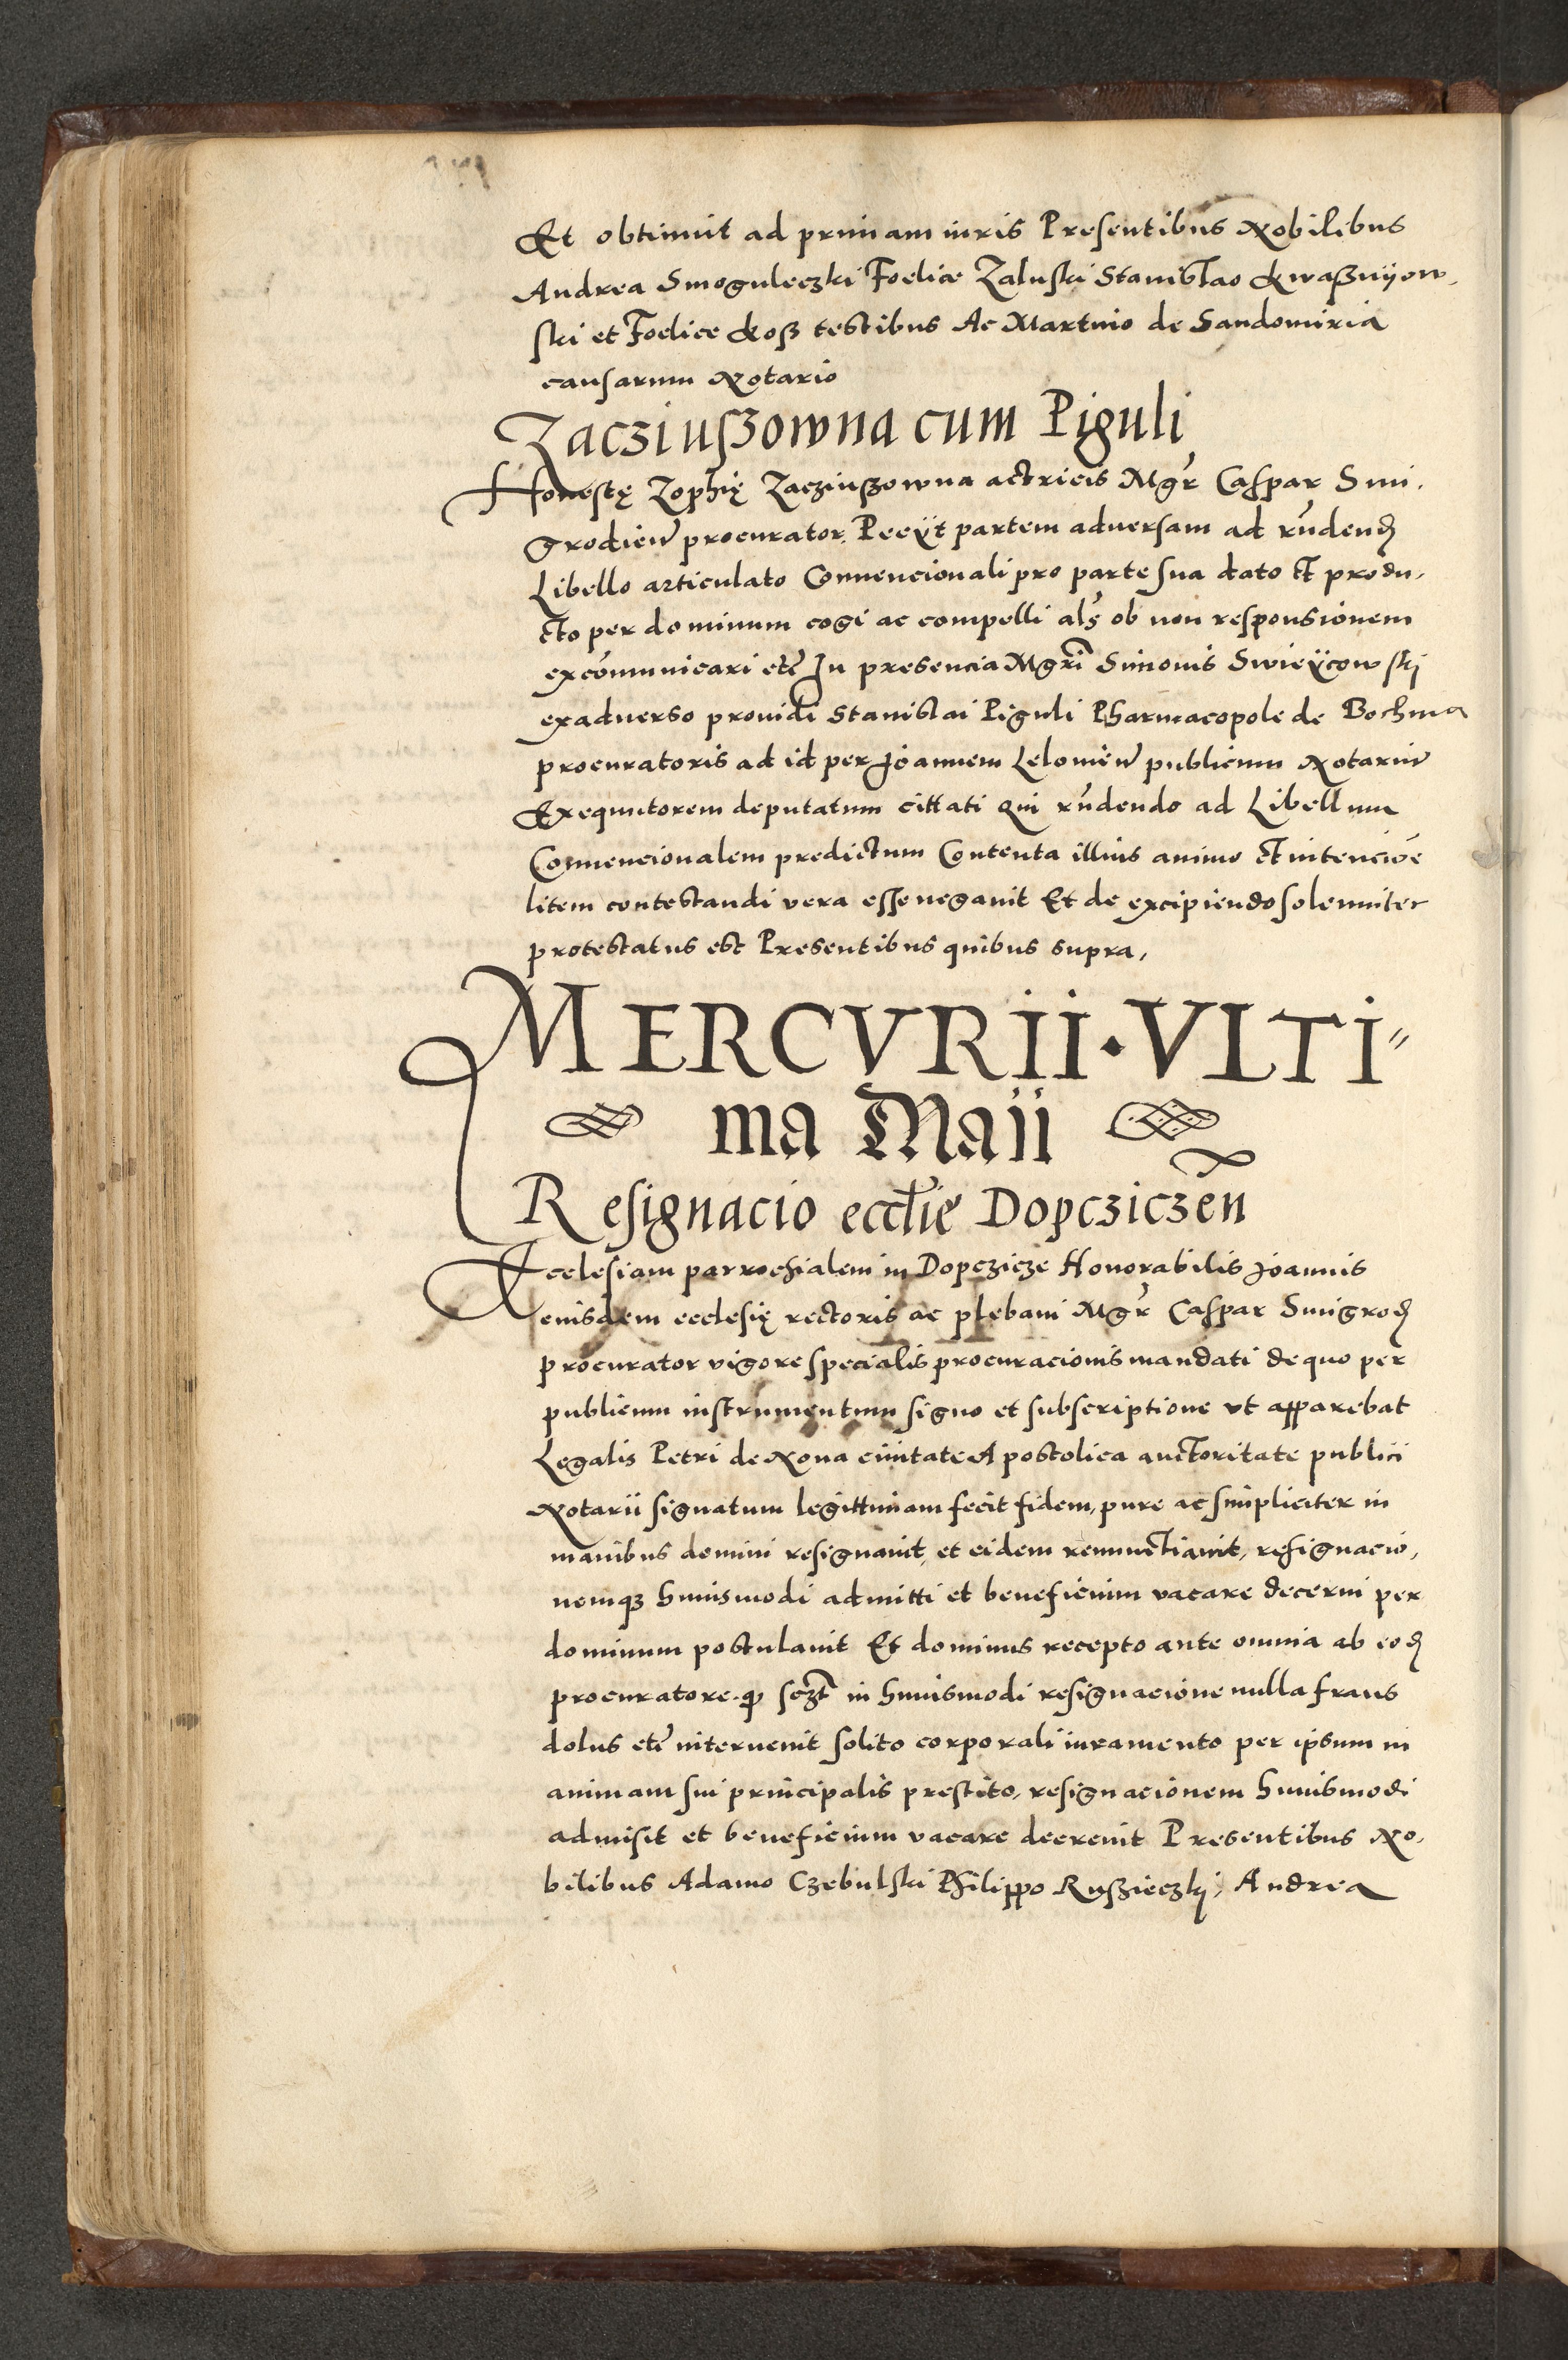 Et obtinuit ad primam iuris Presentibus Nobilibus
Andrea Smoguleczki Foelice Zaluski Stanislao Kwaßnÿow,
ski et Foelice Koß testibus Ac Martino de Sandomiria
causarum Notario
Zacziuszowna cum Piguli
Honestę Zophię Zacziuszowna actricis Mgr̃ Caspar Smi,
grodień procurator. Peeÿt partem adversam ad rñdend
Libello articulato Conuencionali pro parte sua dato et produ,
cto per dominum cogi ac compelli als̃ ob non responsionem
excõmunicari etc̃ In presencia Mgrĩ Simonis Swieÿcowski
exaduerso prouidi Stanislai Piguli Pharmacopole de Bochnia
procuratoris ad id per Joannem Lelouień publicum Notariũ
Exequutorem deputatum cittati Qui rñdendo ad Libellum
Conuencionalem predictum Contenta illius animo et intenciõe
litem contestandi vera esse negauit Et de excipiendo solenniter
protestatus est Presentibus quibus supra,
MERCVRII · VLTI"
ma Maii
Resignacio eccłie Dopcziczeñ
Ecclesiam parrochialem in Dopczicze Honorabilis Joannis
eiusdem ecclesię rectoris ac plebani Mgr̃ Caspar Smigrod
procurator vigore specialis procuracionis mandati de quo per
publicum instrumentum signo et subscriptione vt apparebat
Legalis Petri de Noua ciuitate Apostolica auctoritate publici
Notarii signatum legittimam fecit fidem, pure ac simpliciter in
manibus domini resignauit, et eidem renunctiauit, resignacio,
nemqȝ huiusmodi admitti et beneficium vacare decerni per
dominum postulauit Et dominus recepto ante omnia ab eod
procuratore. ꝙ sczt̃ in huiusmodi resignacione nulla fraus
dolus etc̃ interuenit solito corporali iuramento per ipsum in
animam sui principalis prestito, resignacionem huiusmodi
admisit et beneficium vacare decreuit Presentibus No,
bilibus Adamo Czebulski Philippo Rußieczki, Andrea